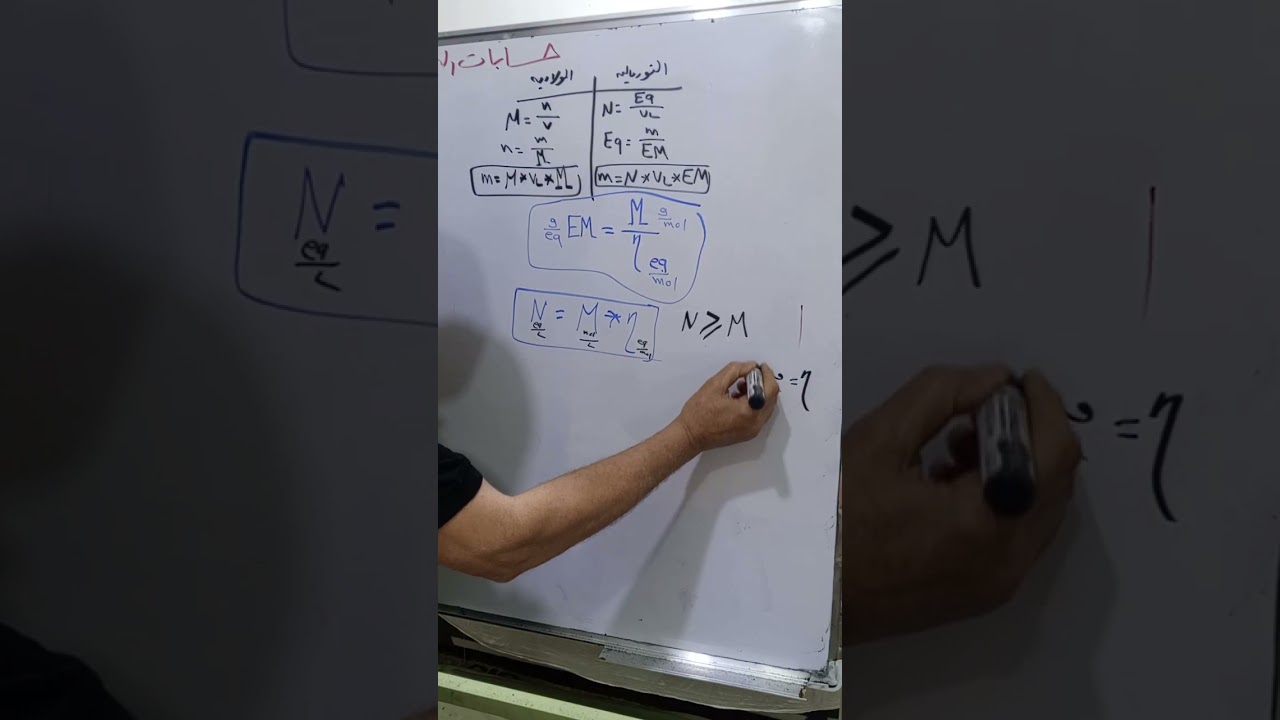 حسابات ال
المولارية | النورمالية
M = n/V | N = Eq/VL
n = m/M | Eq = m/EM
m = M * VL * M | m = N * VL * EM
g/eq EM = M g/mol / η eq/mol
N eq/L = M mol/L * η eq/mol
N ≥ M
= η